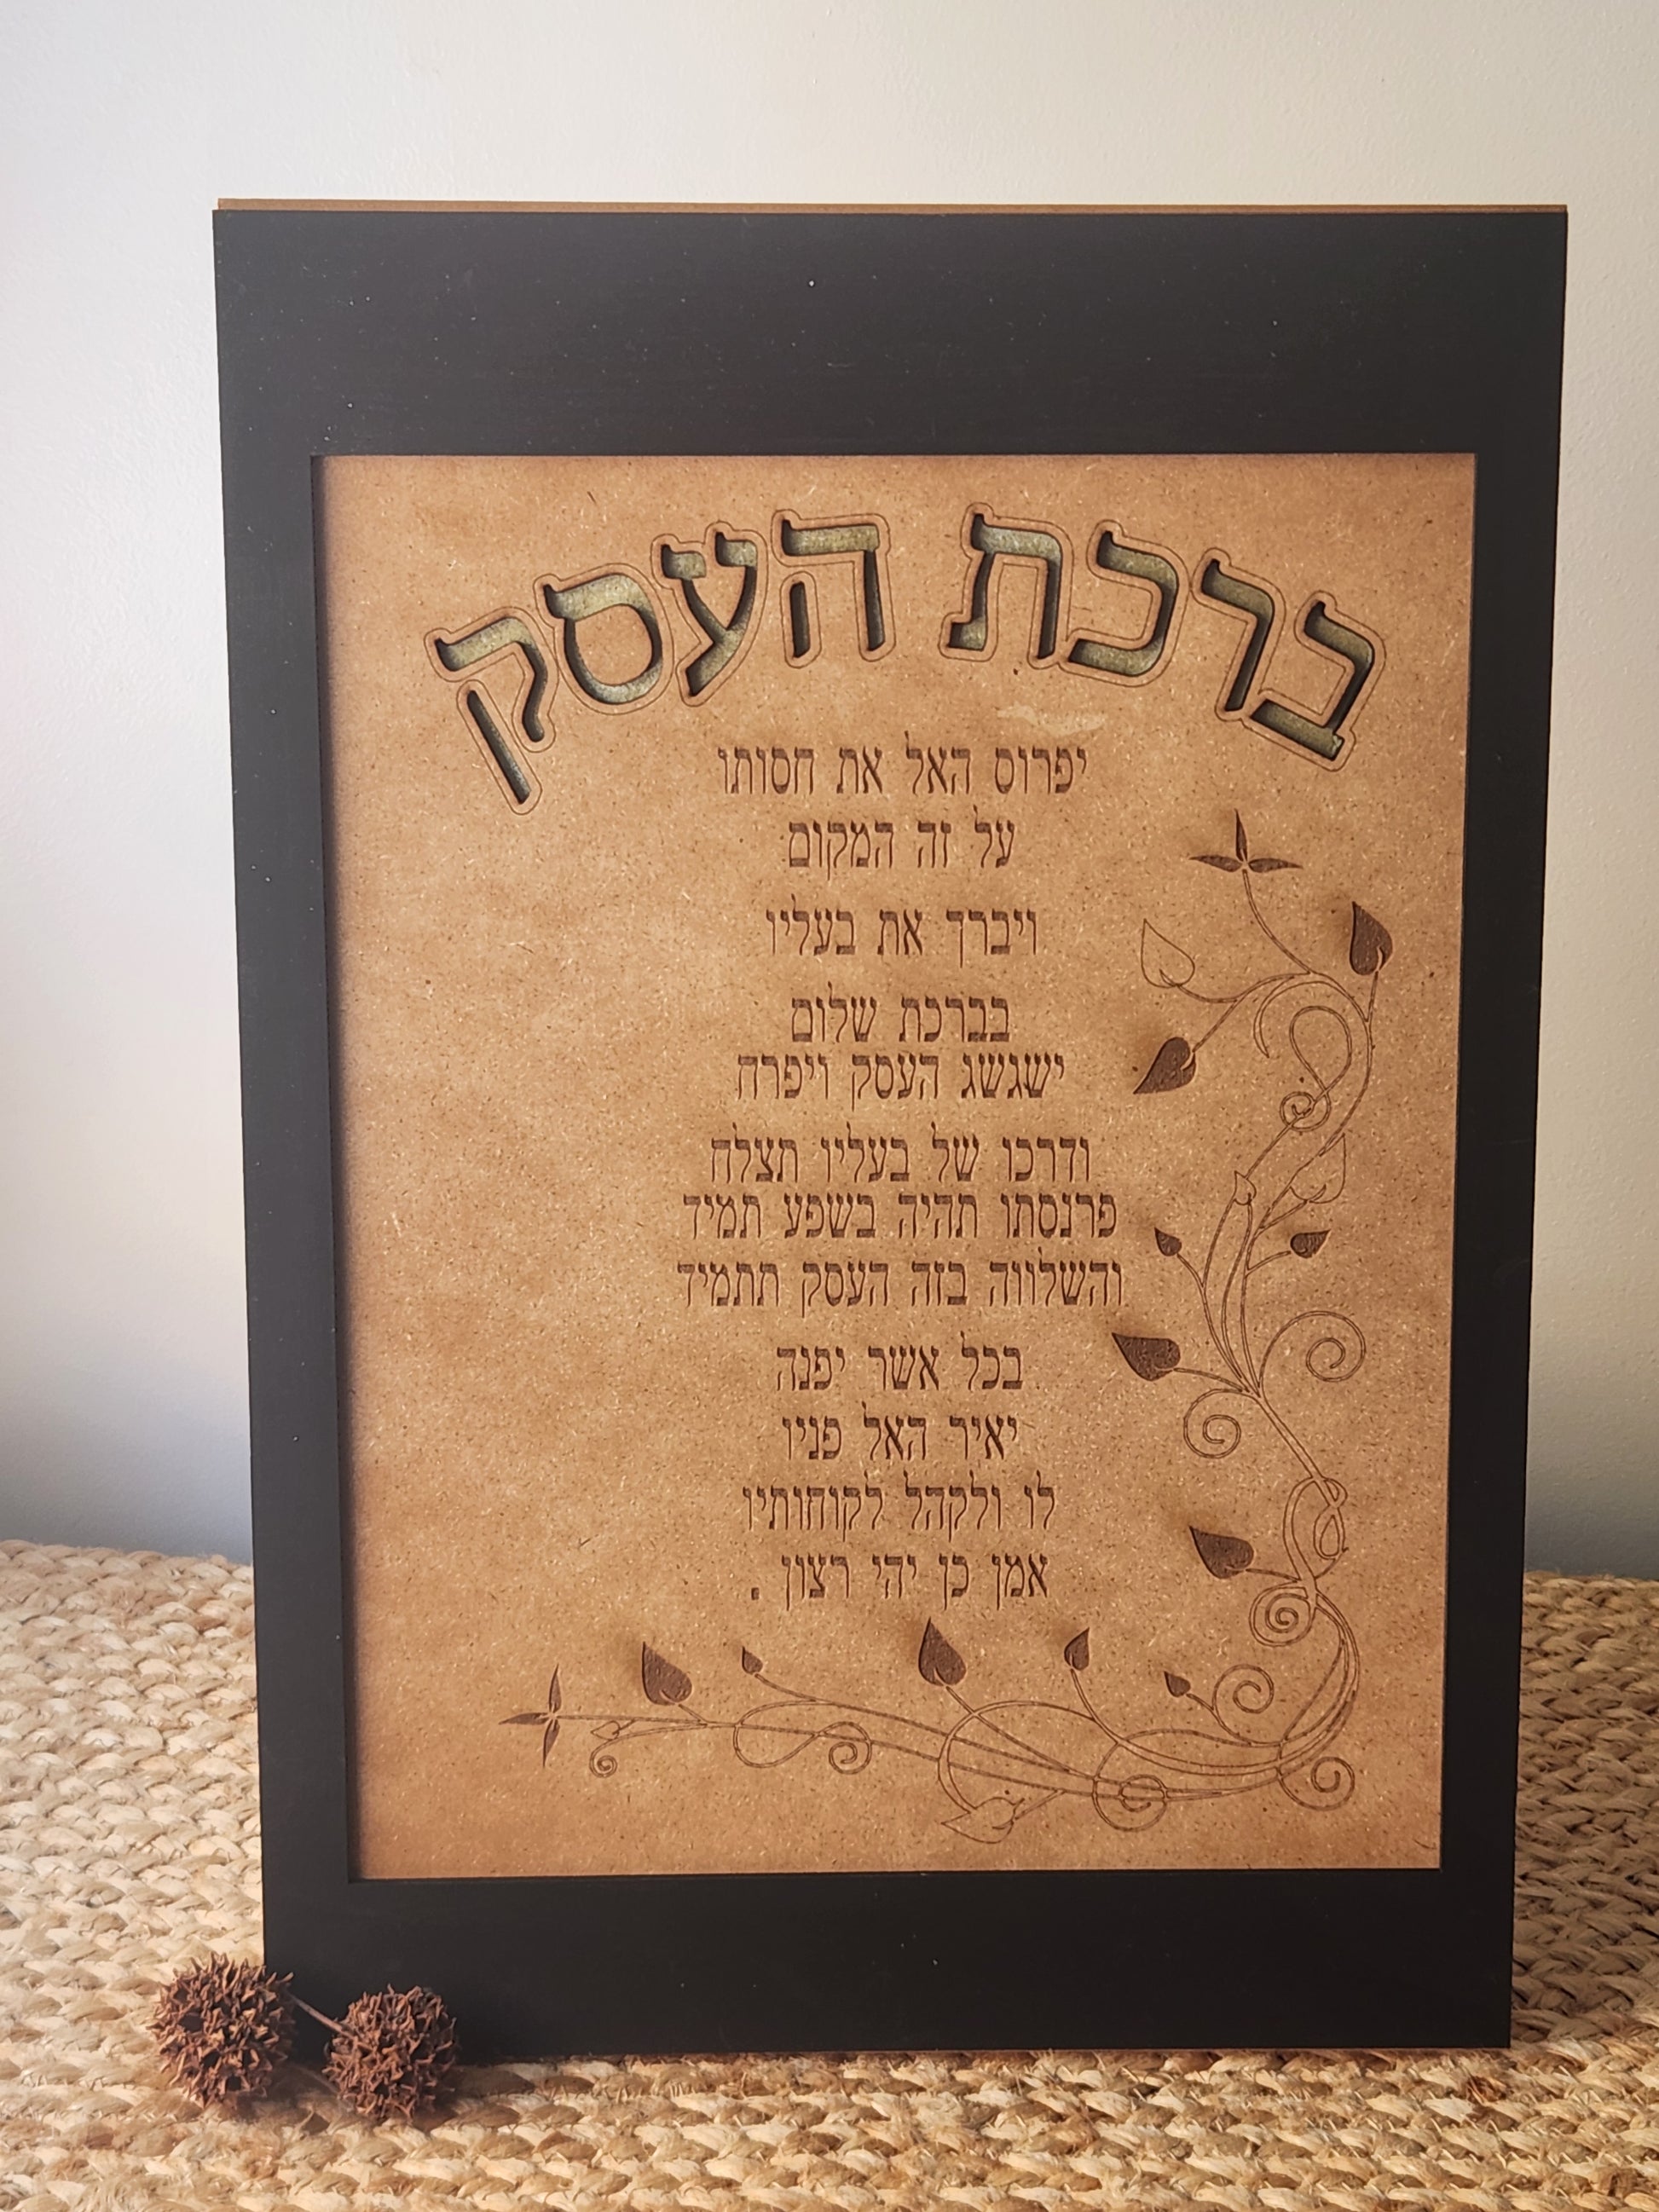 ברכת העסק
יפרוס האל את חסותו
על זה המקום
ויברך את בעליו
בברכת שלום
ישגשג העסק ויפרח
ודרכו של בעליו תצלח
פרנסתו תהיה בשפע תמיד
והשלווה בזה העסק תתמיד
בכל אשר יפנה
יאיר האל פניו
לו ולקהל לקוחותיו
אמן כן יהי רצון .